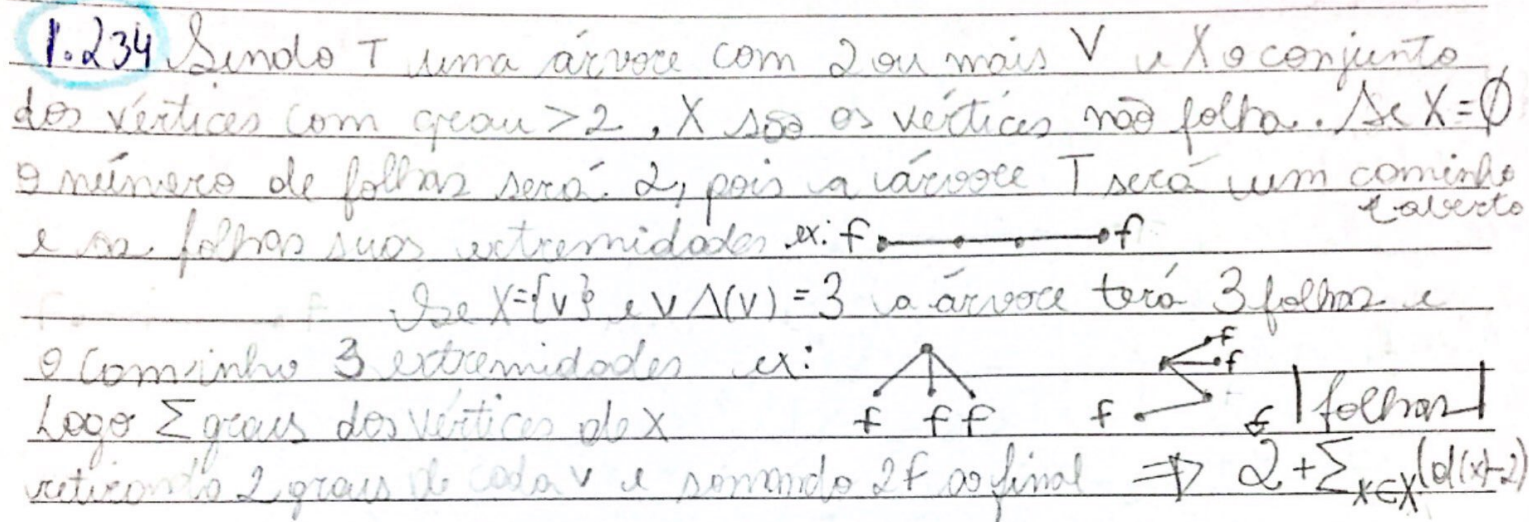 1.234 Sendo T uma árvore com 2 ou mais V e X o conjunto
dos vértices com grau > 2, X são os vértices não folha. Se X = ∅
o número de folhas será 2, pois a árvore T será um caminho
aberto
e as folhas suas extremidades ex: f f
Se X = {v} e v Δ(v) = 3 a árvore terá 3 folhas e
o caminho 3 extremidades ex: f f
f f f f |folhas|
Logo Σ graus dos vértices de X
retirando 2 graus de cada v e somando 2f ao final ⇒ 2 + Σ x∈X (d(x)-2)